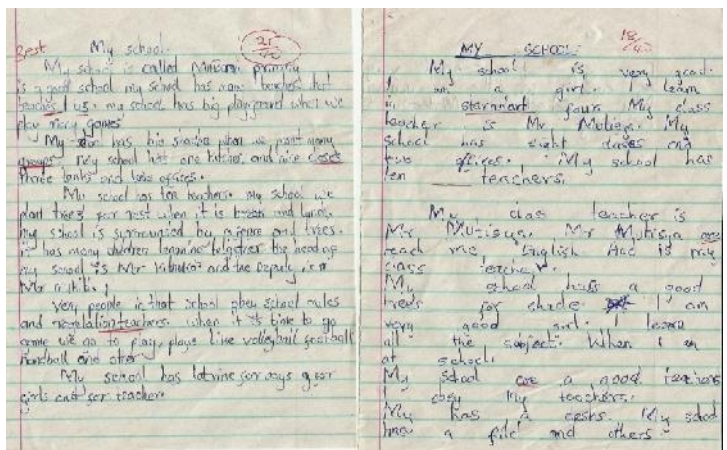 My school
21
40
My school is called primary
is a good school my school has many teachers that
teaches us. my school has big playground when we
play many games
My has big when we plant many
my school has one kitchen and nine
three tanks and two offices.
My school has ten teachers. my school we
plant trees for rest when it is break and lunch.
my school is surrounded by a and trees.
it has many children learning together the head of
my school is Mr and the Deputy is
Mr
very people in that school obey school rules
and teachers. when it is time to go
we go to play, plays like volleyball football
handball and other
My school has latrine for boys
girls and for teacher.
MY SCHOOL
18
40
My school is very good.
I am a girl. I learn
in four My class
teacher is Mr Mutisya. My
school has eight and
two offices. My school has
ten teachers.
My class teacher is
Mr Mutisya. Mr Mutisya are
teach me English is my
class teacher.
My school has a good
trees for shade I am
very good girl. I learn
all the subject. When I am
at school.
My school are a good teachers
I obey my teachers.
My has a desks. My school
has a and others.